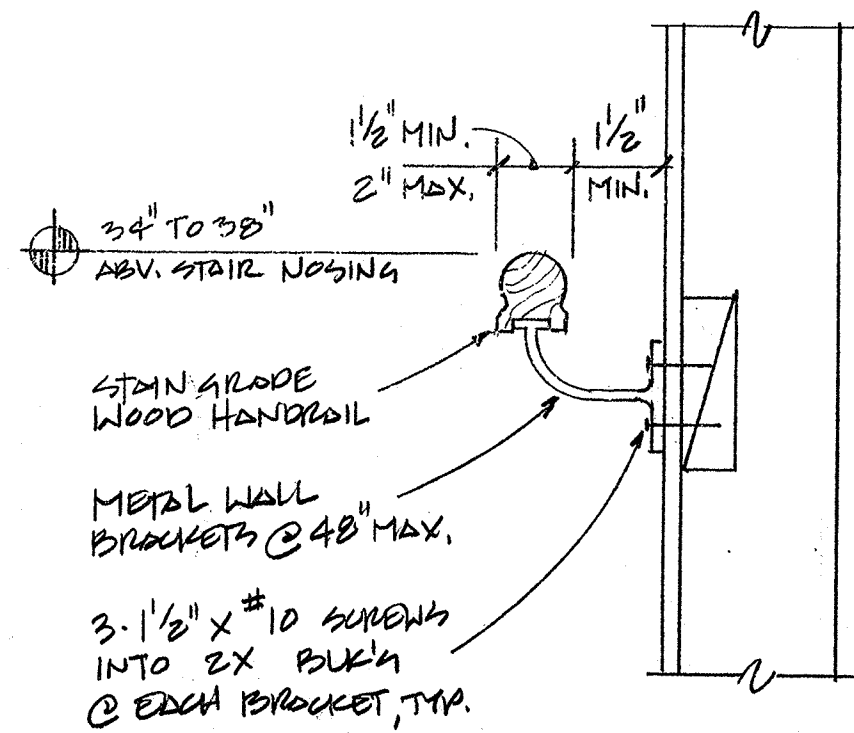 1 1/2" MIN.
2" MAX.
1 1/2"
MIN.
34" TO 38"
ABV. STAIR NOSING
STAIN GRADE
WOOD HANDRAIL
METAL WALL
BRACKETS @ 48" MAX.
3-1 1/2" X #10 SCREWS
INTO 2X BLK'G
@ EACH BRACKET, TYP.